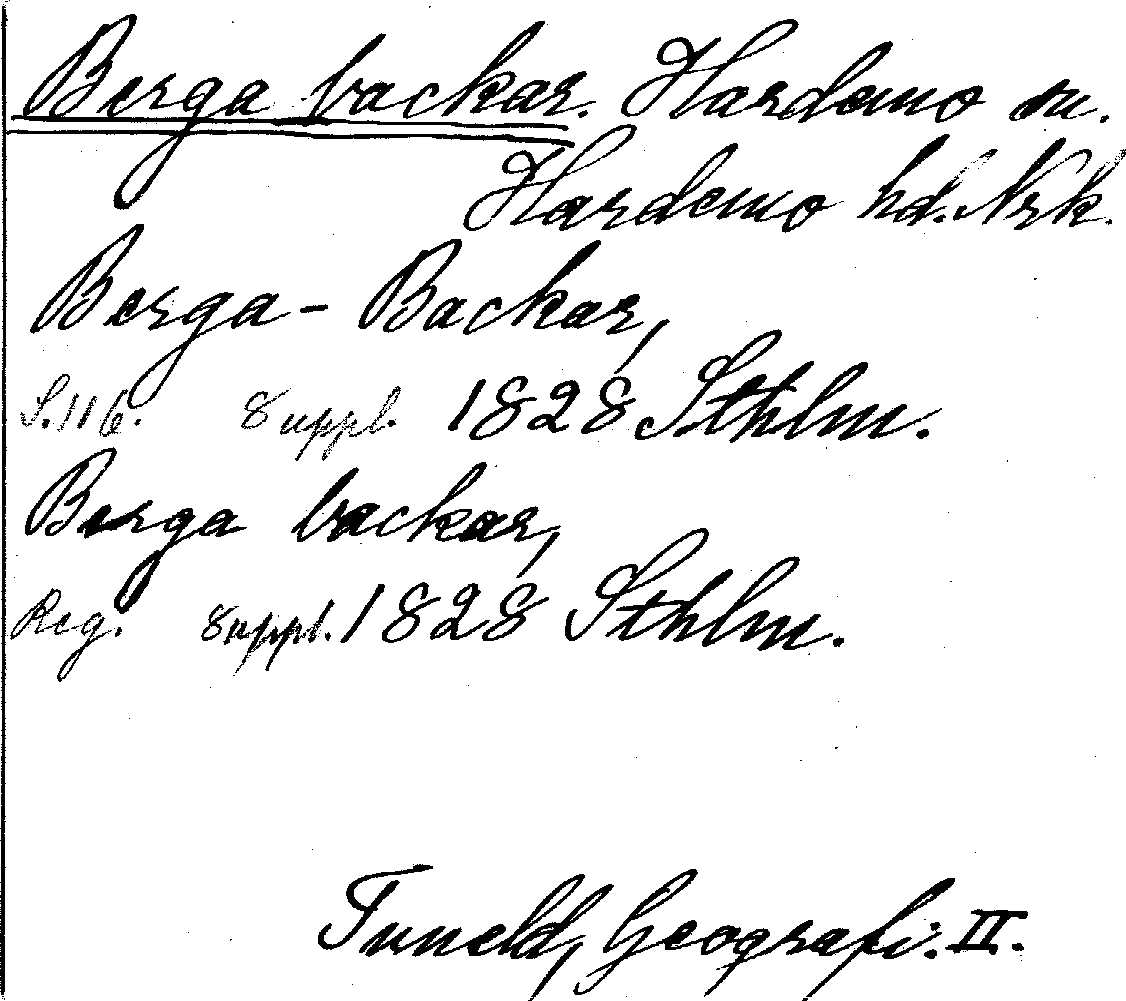 Berga backar. Hardemo sn.
Hardemo hd. Nrk.
Berga-Backar,
S. 116. Suppl. 1828 Sthlm.
Berga backar,
Reg. Suppl. 1828 Sthlm.
Tuneld, Geografi. II.